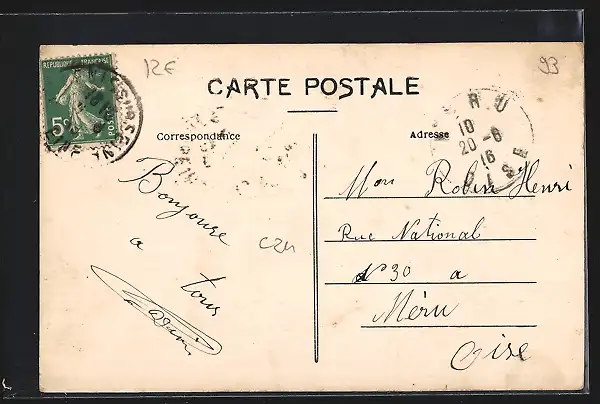 12€
93
RÉPUBLIQUE FRANÇAISE
5c
POSTES
CARTE POSTALE
Correspondance
Adresse
MÉRU
10
20-6
16
OISE
Bonjoure
a
tous
C24
Mon Robin Henri
Rue National
N° 30 a
Méru
Oise